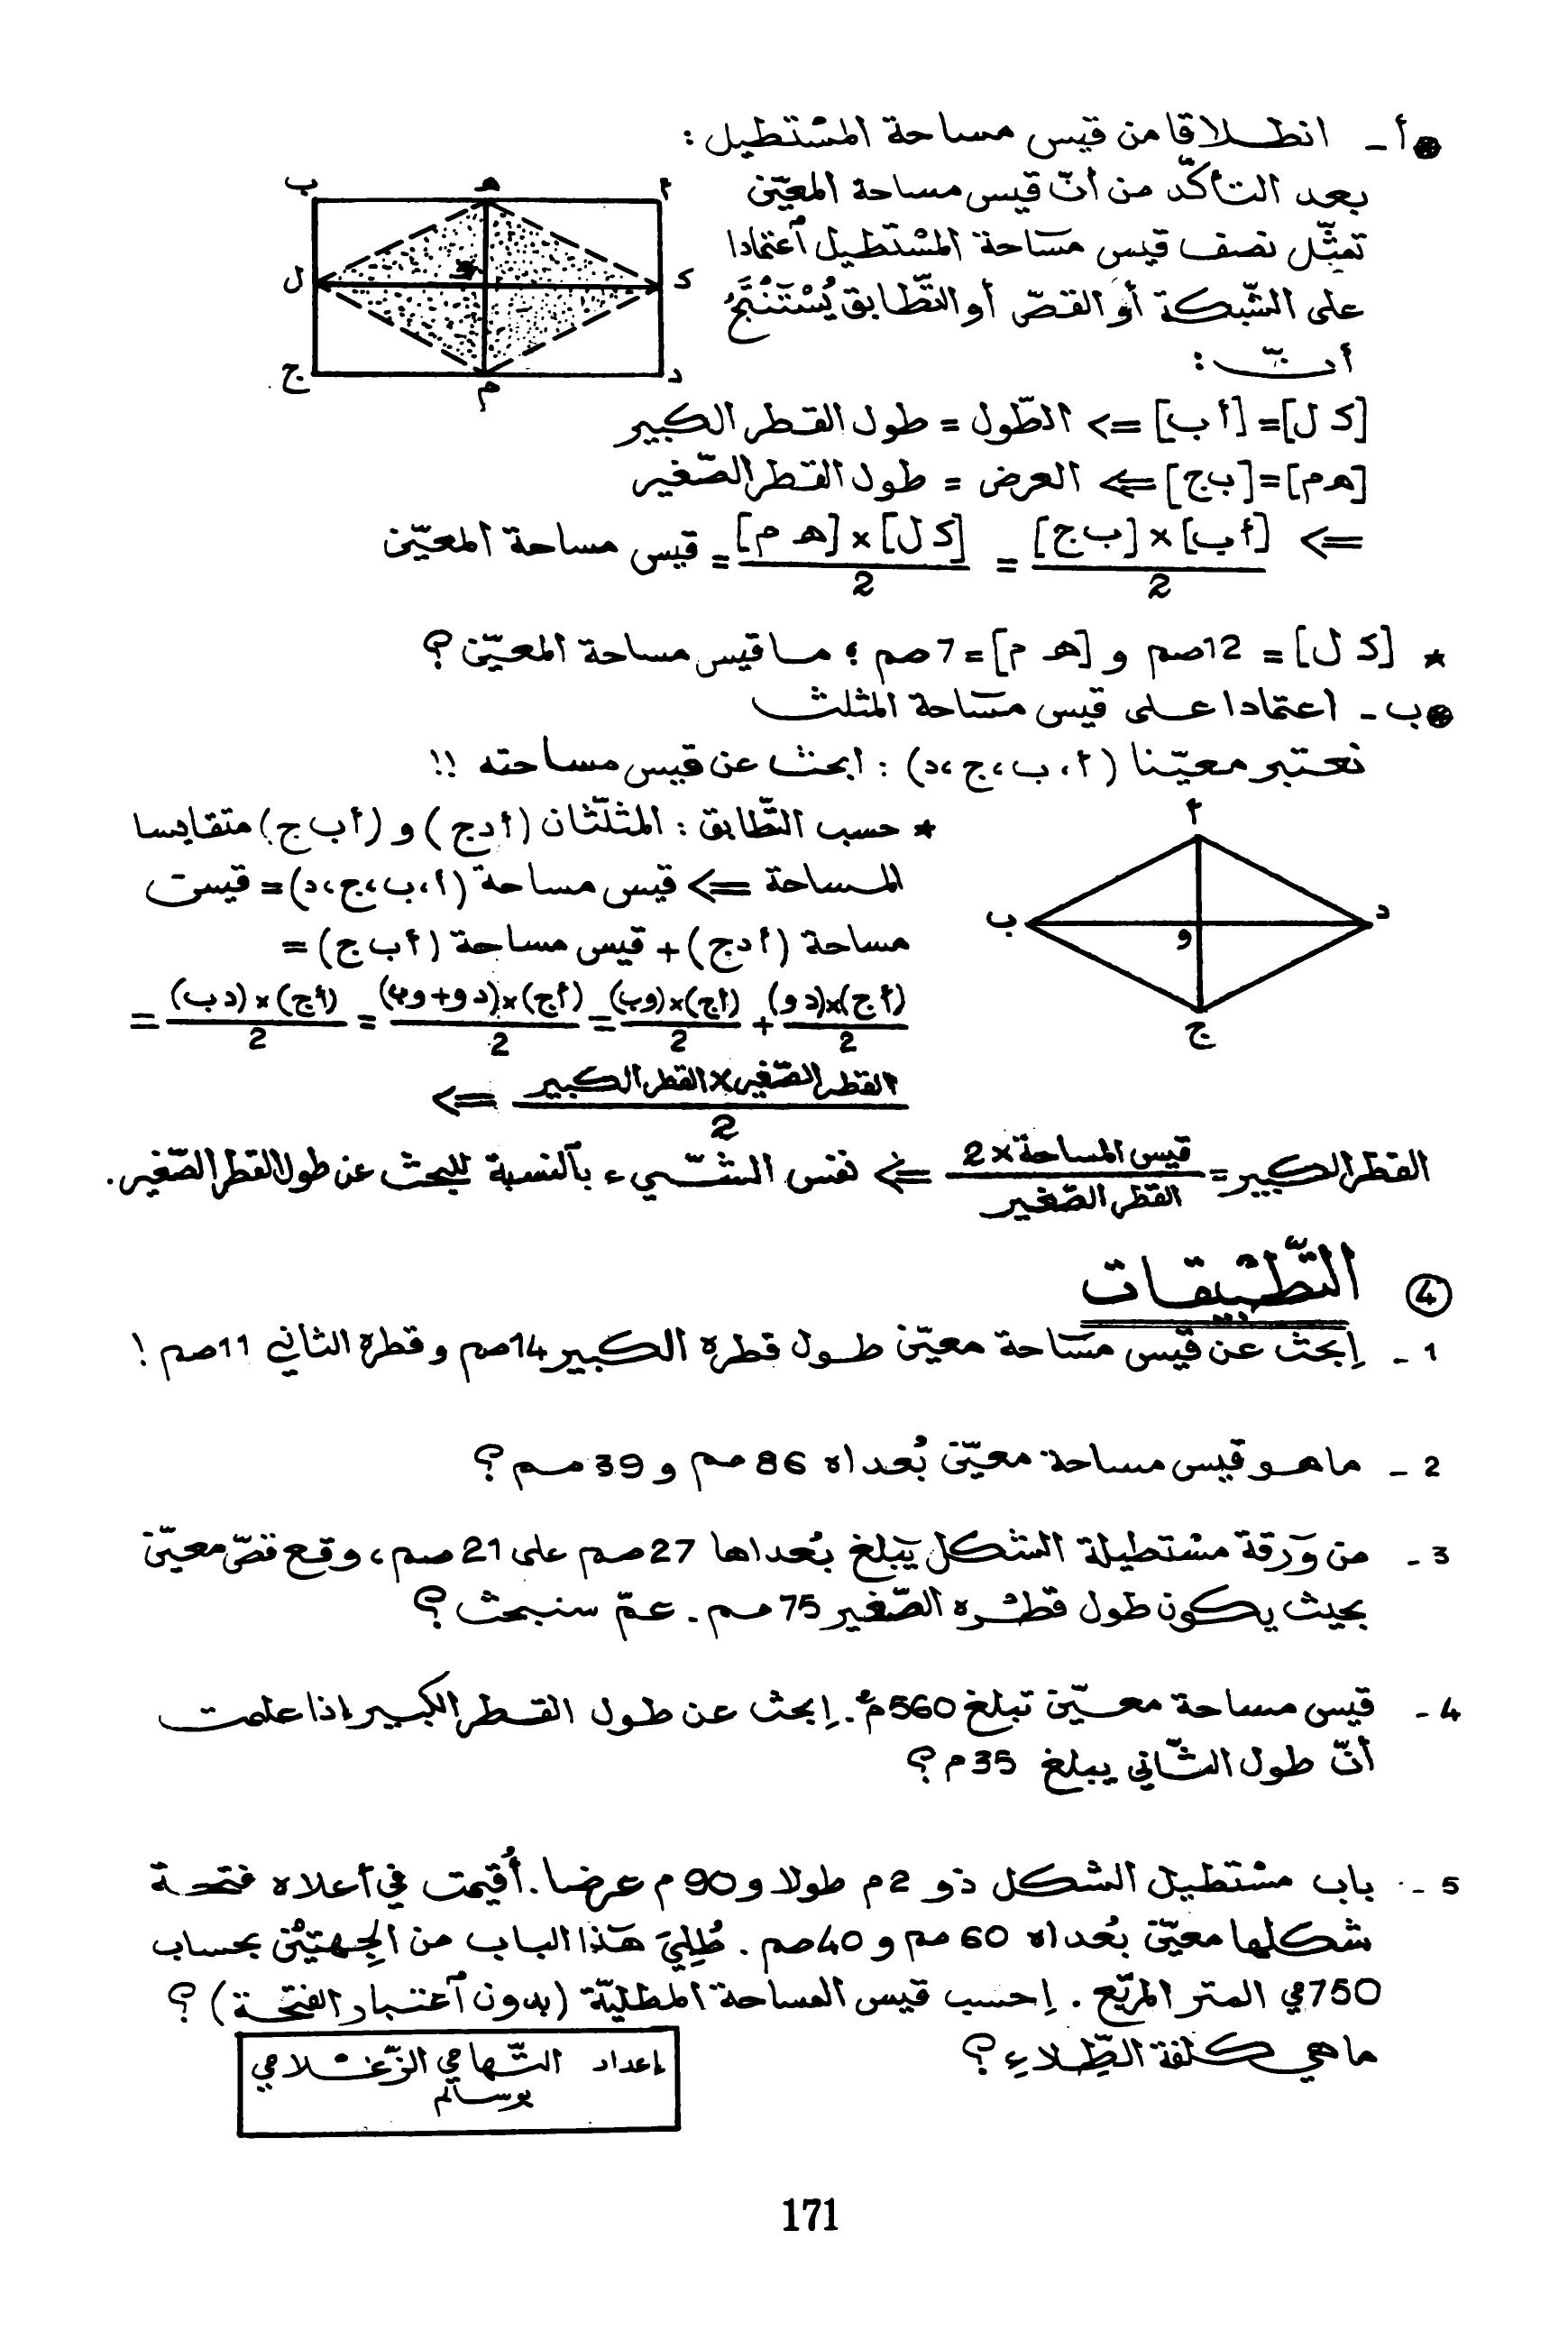 أ - انطلاقا من قيس مساحة المستطيل :
بعد التأكّد من أنّ قيس مساحة المعيّن
تمثّل نصف قيس مساحة المستطيل اعتمادا
على الشّبكة أو القصّ أو التّطابق يُسْتَنْتَجُ
أنّ :
أ
هـ
ب
ك
و
ل
د
م
ج
[ك ل] = [أ ب] => الطّول = طول القطر الكبير
[هـ م] = [ب ج] => العرض = طول القطر الصّغير
=> [أ ب] × [ب ج] / 2 = [ك ل] × [هـ م] / 2 = قيس مساحة المعيّن
* [ك ل] = 12 صم و [هـ م] = 7 صم ؛ ما قيس مساحة المعيّن ؟
ب - اعتمادا على قيس مساحة المثلث
نعتبر معيّنا (أ، ب، ج، د) : ابحث عن قيس مساحته !!
أ
د
ب
و
ج
* حسب التّطابق : المثلّثان (أ د ج) و (أ ب ج) متقايسا
المساحة => قيس مساحة (أ، ب، ج، د) = قيس
مساحة (أ د ج) + قيس مساحة (أ ب ج) =
(أ ج)×(د و) / 2 + (أ ج)×(و ب) / 2 = (أ ج)×(د و + و ب) / 2 = (أ ج)×(د ب) / 2 =
القطر الصّغير × القطر الكبير / 2 =>
القطر الكبير = قيس المساحة × 2 / القطر الصّغير => نفس الشّيء بالنسبة للبحث عن طول القطر الصّغير.
④ التّطبيقات
1 - إبحث عن قيس مساحة معيّن طول قطره الكبير 14 صم وقطره الثاني 11 صم !
2 - ما هو قيس مساحة معيّن بُعداه 86 صم و 39 صم ؟
3 - من ورقة مستطيلة الشكل يبلغ بُعداها 27 صم على 21 صم، وقع قصّ معيّن
بحيث يكون طول قطره الصّغير 75 مم. عمّ سنبحث ؟
4 - قيس مساحة معيّن تبلغ 560 م². إبحث عن طول القطر الكبير إذا علمت
أنّ طول الثّاني يبلغ 35 م ؟
5 - باب مستطيل الشكل ذو 2 م طولا و 90 م عرضا. أُقيمت في أعلاه فتحة
شكلها معيّن بُعداه 60 صم و 40 صم. طُلِيَ هذا الباب من الجِهتيْن بحساب
750 مي المتر المربّع. إحسب قيس المساحة المطليّة (بدون اعتبار الفتحة) ؟
ما هي كلفة الطِّلاءِ ؟
إعداد التّهامي الزّغلامي
بوسالم
171